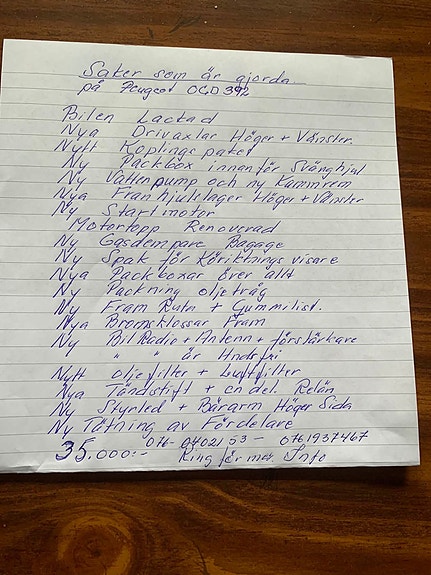 Saker som är gjorda
på Peugeot OGD392
Bilen Lackad
Nya Drivaxlar Höger + Vänster.
Nytt Kopplings paket
Ny Packbox innanför Svänghjul
Ny Vattenpump och ny Kamrem
Nya Framhjulslager Höger + Vänster
Ny Startmotor
Motortopp Renoverad
Ny Gasdempare Bagage
Ny Spak för Körriktnings visare
Nya Packboxar över allt
Ny Packning oljetråg
Ny Fram Ruta + Gummilist.
Nya Bromsklossar Fram
Ny Bil Radio + Antenn + förstärkare
" " är Hndsfri
Nytt Oljefilter + Luftfilter
Nya Tändstift + en del. Relän
Ny Styrled + Bärarm Höger Sida
Ny Tätning av Fördelare
076-0402153 - 0761937467
35.000:- Ring för mer Info